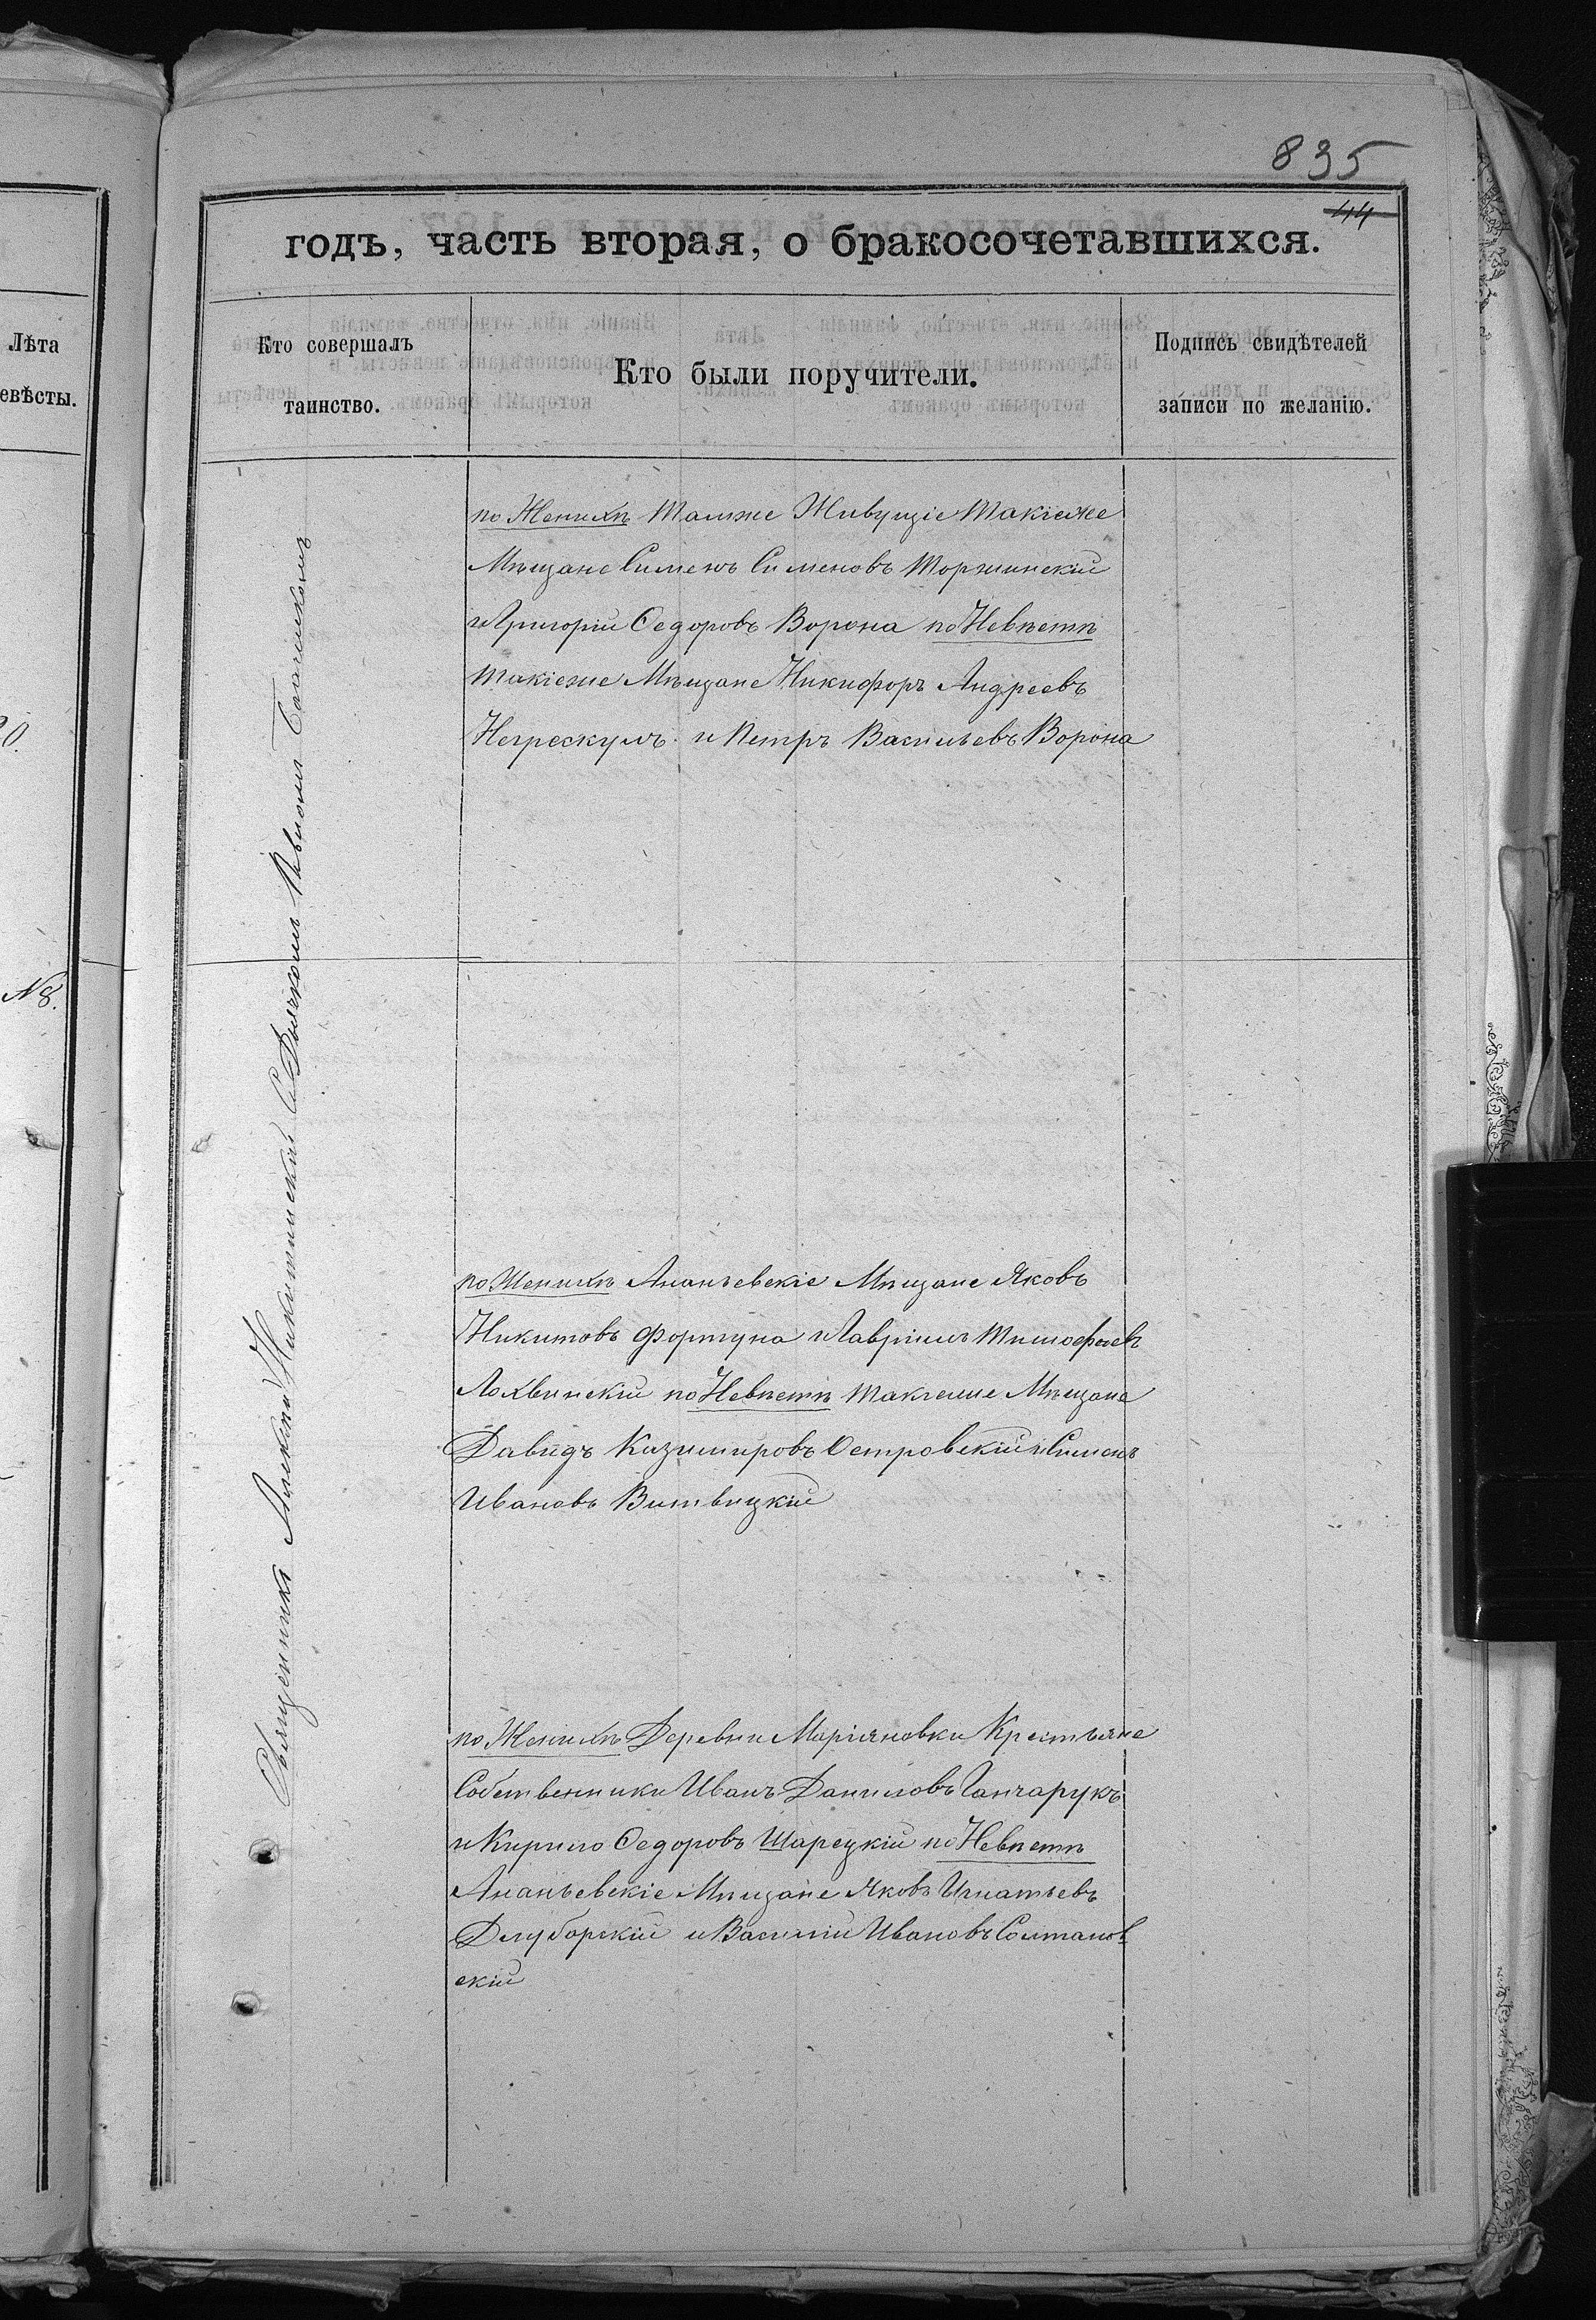 835
44
годъ, часть вторая, о бракосочетавшихся.
Лѣта
евѣсты.
Кто совершалъ
таинство.
Кто были поручители.
Подпись свидѣтелей
записи по желанію.
0.
N8.
Священникъ Алексѣй Никитинскій С Дьячкомъ
по Женихѣ Тамже Живущіе Такіеже
Мѣщане Сименъ Сименовъ Торжинскій
и Григорій Ѳедоровъ Ворона по Невѣстѣ
Такіеже Мѣщане Никифоръ Андреевъ
Негрескулъ и Петръ Васильевъ Ворона
по Женихѣ Ананьевскіе Мѣщане Яковъ
Никитовъ Фортуна и Лаврѣнъ Тимофѣевъ
Лохвинскій по Невѣстѣ Такіеже Мѣщане
Давидъ Казимировъ Островскій и Сименъ
Ивановъ Витвицкій
по Женихѣ Деревни Маріяновки Крестьяне
Собственники Иванъ Даниловъ Ганчарукъ
и Кирило Ѳедоровъ Шарецкій по Невѣстѣ
Ананьевскіе Мѣщане Яковъ Игнатьевъ
Длуборскій и Василій Ивановъ Солтанов-
скій